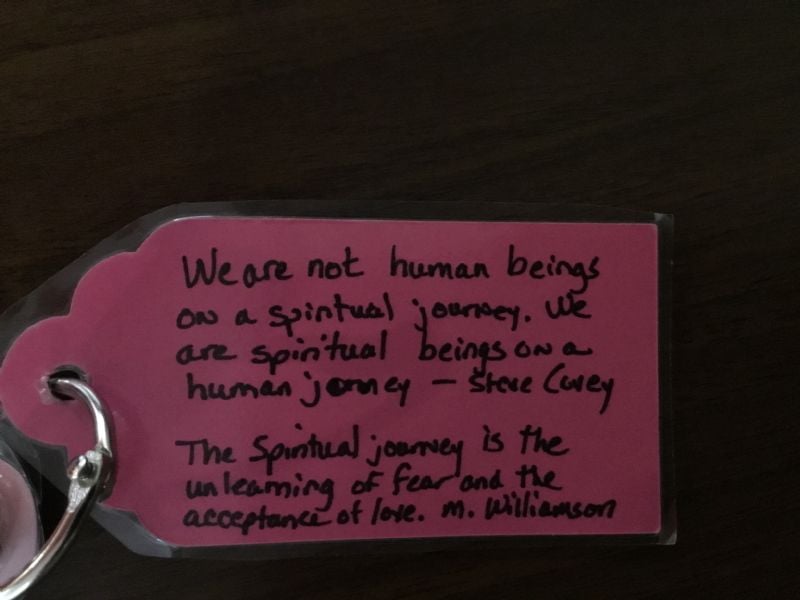 We are not human beings
on a spiritual journey. We
are spiritual beings on a
human jorney – Steve Covey
The Spiritual journey is the
unlearning of fear and the
acceptance of love. M. Williamson